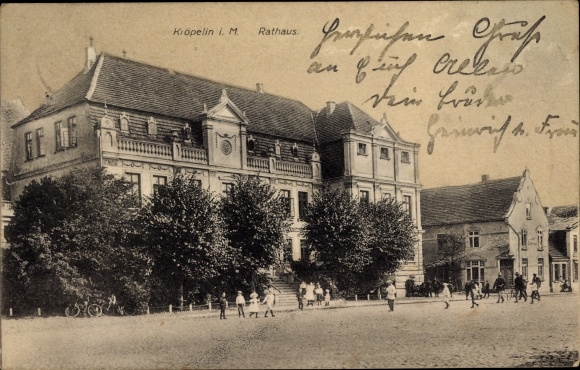 Kröpelin i. M. Rathaus.
Herzlichen Gruß
an Euch Allen
Dein Bruder
Heinrich u. Frau